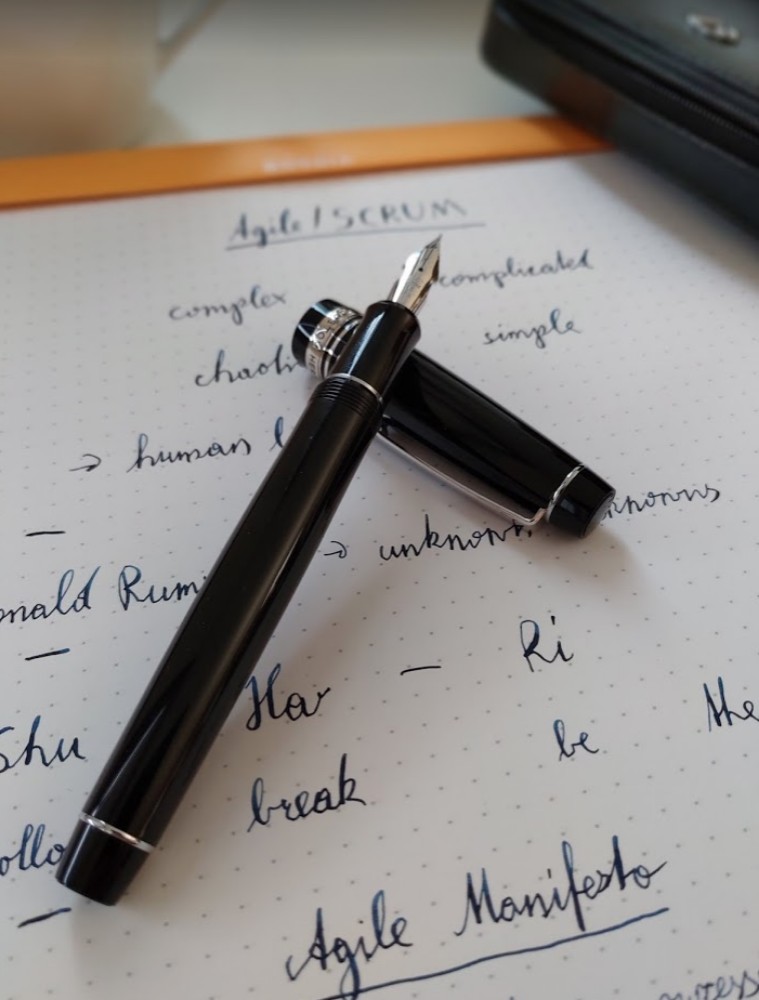 Agile / SCRUM
complex complicated
chaoti simple
→ human l
→ unknown nknowns
onald Rum
Shu Ha – Ri
ollo break be the
Agile Manifesto